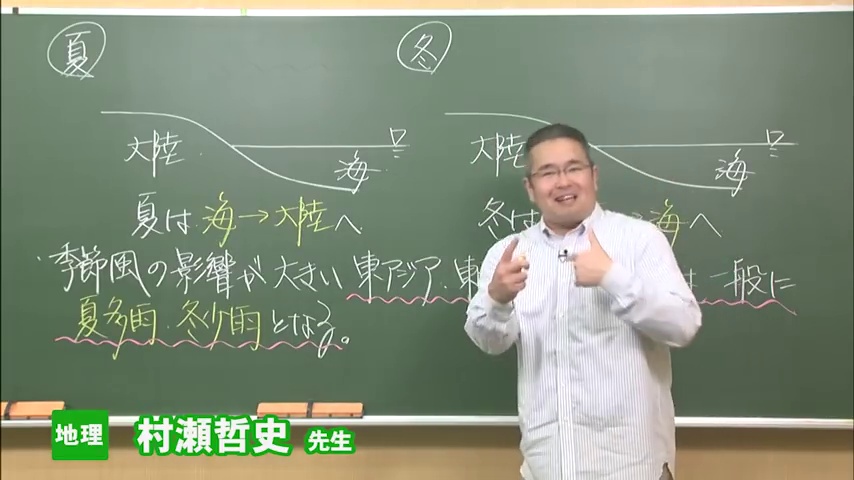 夏
冬
大陸
海
大陸
海
夏は 海→大陸へ
冬は 海へ
季節風の影響が大きい東アジア・東 は一般に
夏多雨・冬少雨となる。
地理 村瀬哲史 先生